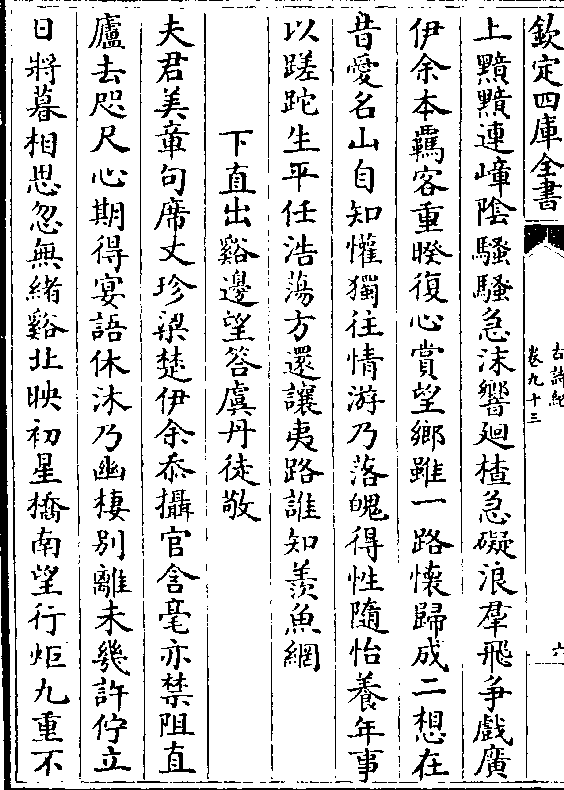 欽定四庫全書
古詩紀
卷九十三
六
上黰黰連嶂陰騷騷急沫響廻楂急礙浪羣飛争戲廣
伊余本羈客重暌復心賞望鄉雖一路懷歸成二想在
昔愛名山自知懽獨往情游乃落魄得性隨怡養年事
以蹉跎生平任浩蕩方還讓夷路誰知羨魚網
下直出谿邊望答虞丹徒敬
夫君美章句席丈珍梁楚伊余忝攝官含毫亦禁阻直
廬去咫尺心期得宴語休沐乃幽棲别離未幾許佇立
日將暮相思忽無緒谿北映初星橋南望行炬九重不